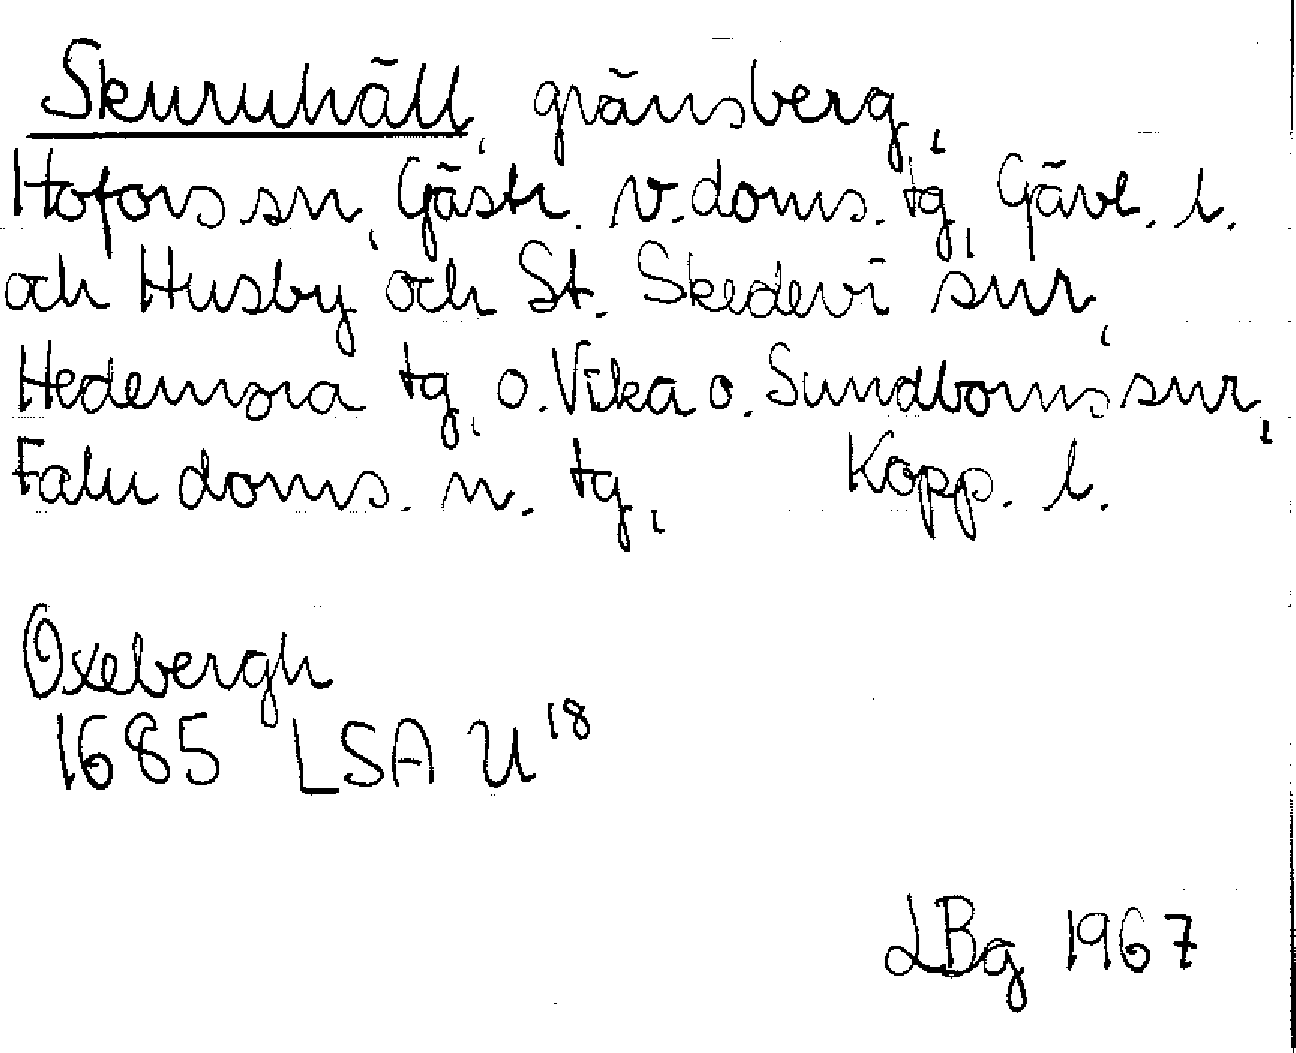 Skuruhäll, gränsberg,
Hofors sn, Gästr. v. doms. tg, Gävl. l.
och Husby och St. Skedevi snr,
Hedemora tg, o. Vika o. Sundborns snr,
Falu doms. n. tg, Kopp. l.
Oxebergh
1685 LSA U¹⁸
LBg 1967